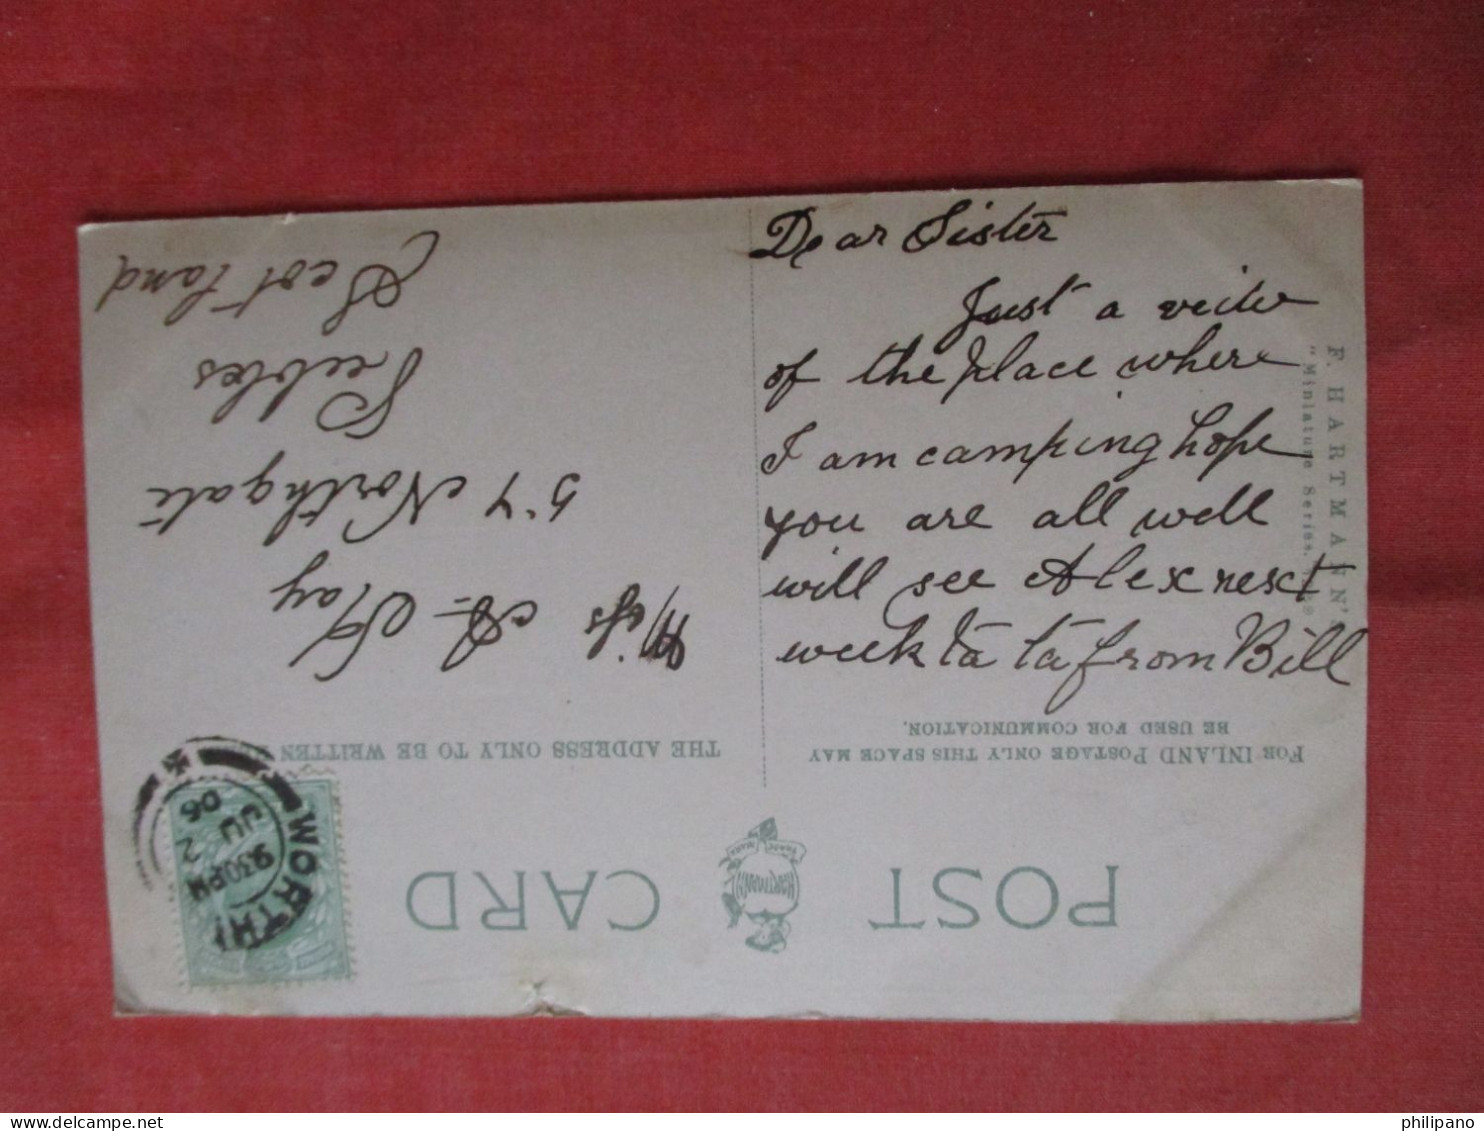 Dear Sister
Just a veiw
of the place where
I am camping hope
you are all well
will see Alex next
week ta ta from Bill
POST CARD
HARTMANN
TRADE MARK
FOR INLAND POSTAGE ONLY THIS SPACE MAY
BE USED FOR COMMUNICATION.
THE ADDRESS ONLY TO BE WRITTEN
A. Hay
57 Northgate
Peebles
Scotland
WORTHI
9.30PM
JU 2
06
F. HARTMANN'
"Miniature Series.
philipano